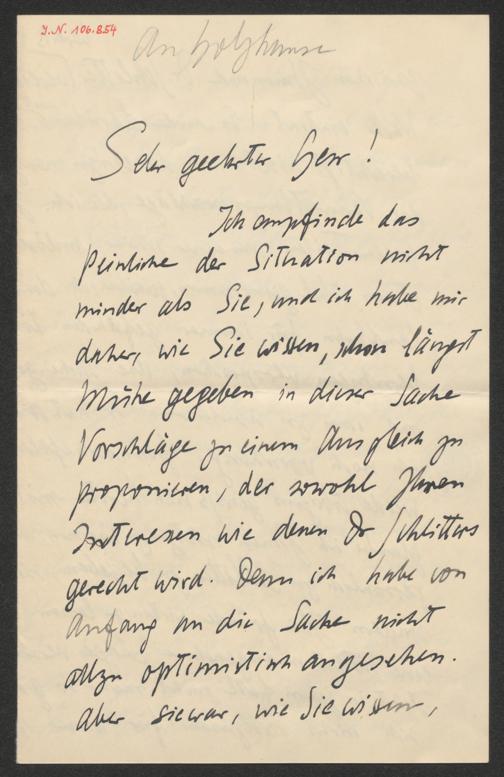 J.N. 106.854
An Holzhause
Sehr geehrter Herr!
Ich empfinde das
Peinliche der Situation nicht
minder als Sie, und ich habe mir
daher, wie Sie wissen, schon längst
Mühe gegeben in dieser Sache
Vorschläge zu einem Ausgleich zu
proponieren, der sowohl Ihren
Interessen wie denen Dr Schlitters
gerecht wird. Denn ich habe von
Anfang an die Sache nicht
allzu optimistisch angesehen.
Aber sie war, wie Sie wissen,